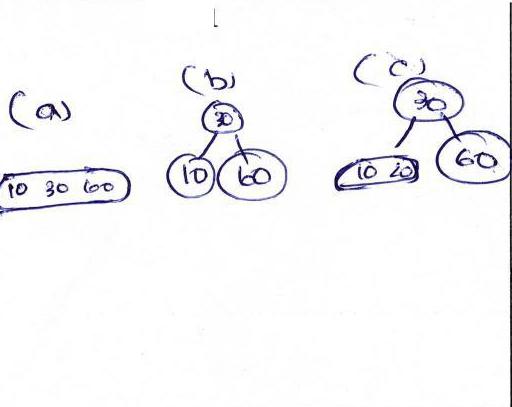 (a)
10 30 60
(b)
30
10 60
(c)
30
10 20
60